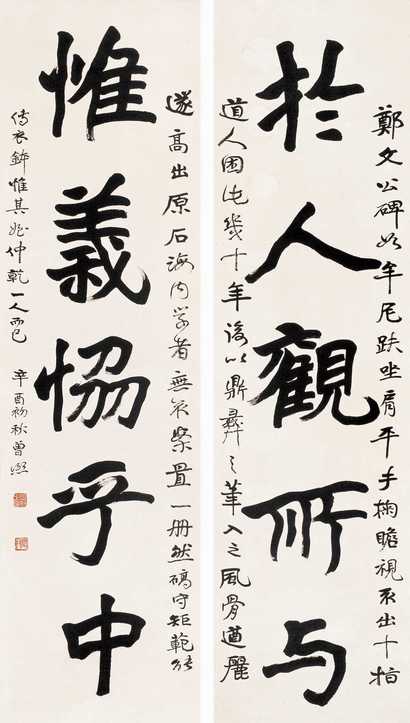 鄭文公碑如牟尼趺坐肩平手掬瞻視不出十指
於人觀所与
道人困此幾十年後以鼎彝之筆入之風骨遒麗
遂高出原石海内学者無不案置一册然碻守矩範能
惟義恊乎中
傳衣鉢惟其姪仲乾一人而已 辛酉初秋曾熙